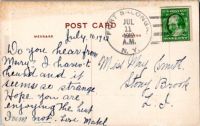 POST CARD
MESSAGE
JUL
11
A.M.
N.Y.
July 10, 1912
Do you hear from
Mary, I haven't
heard and it
seems so strange
Hope you are
enjoying the best
from not. Love Mabel
Miss May Smith
Stony Brook
L. I.